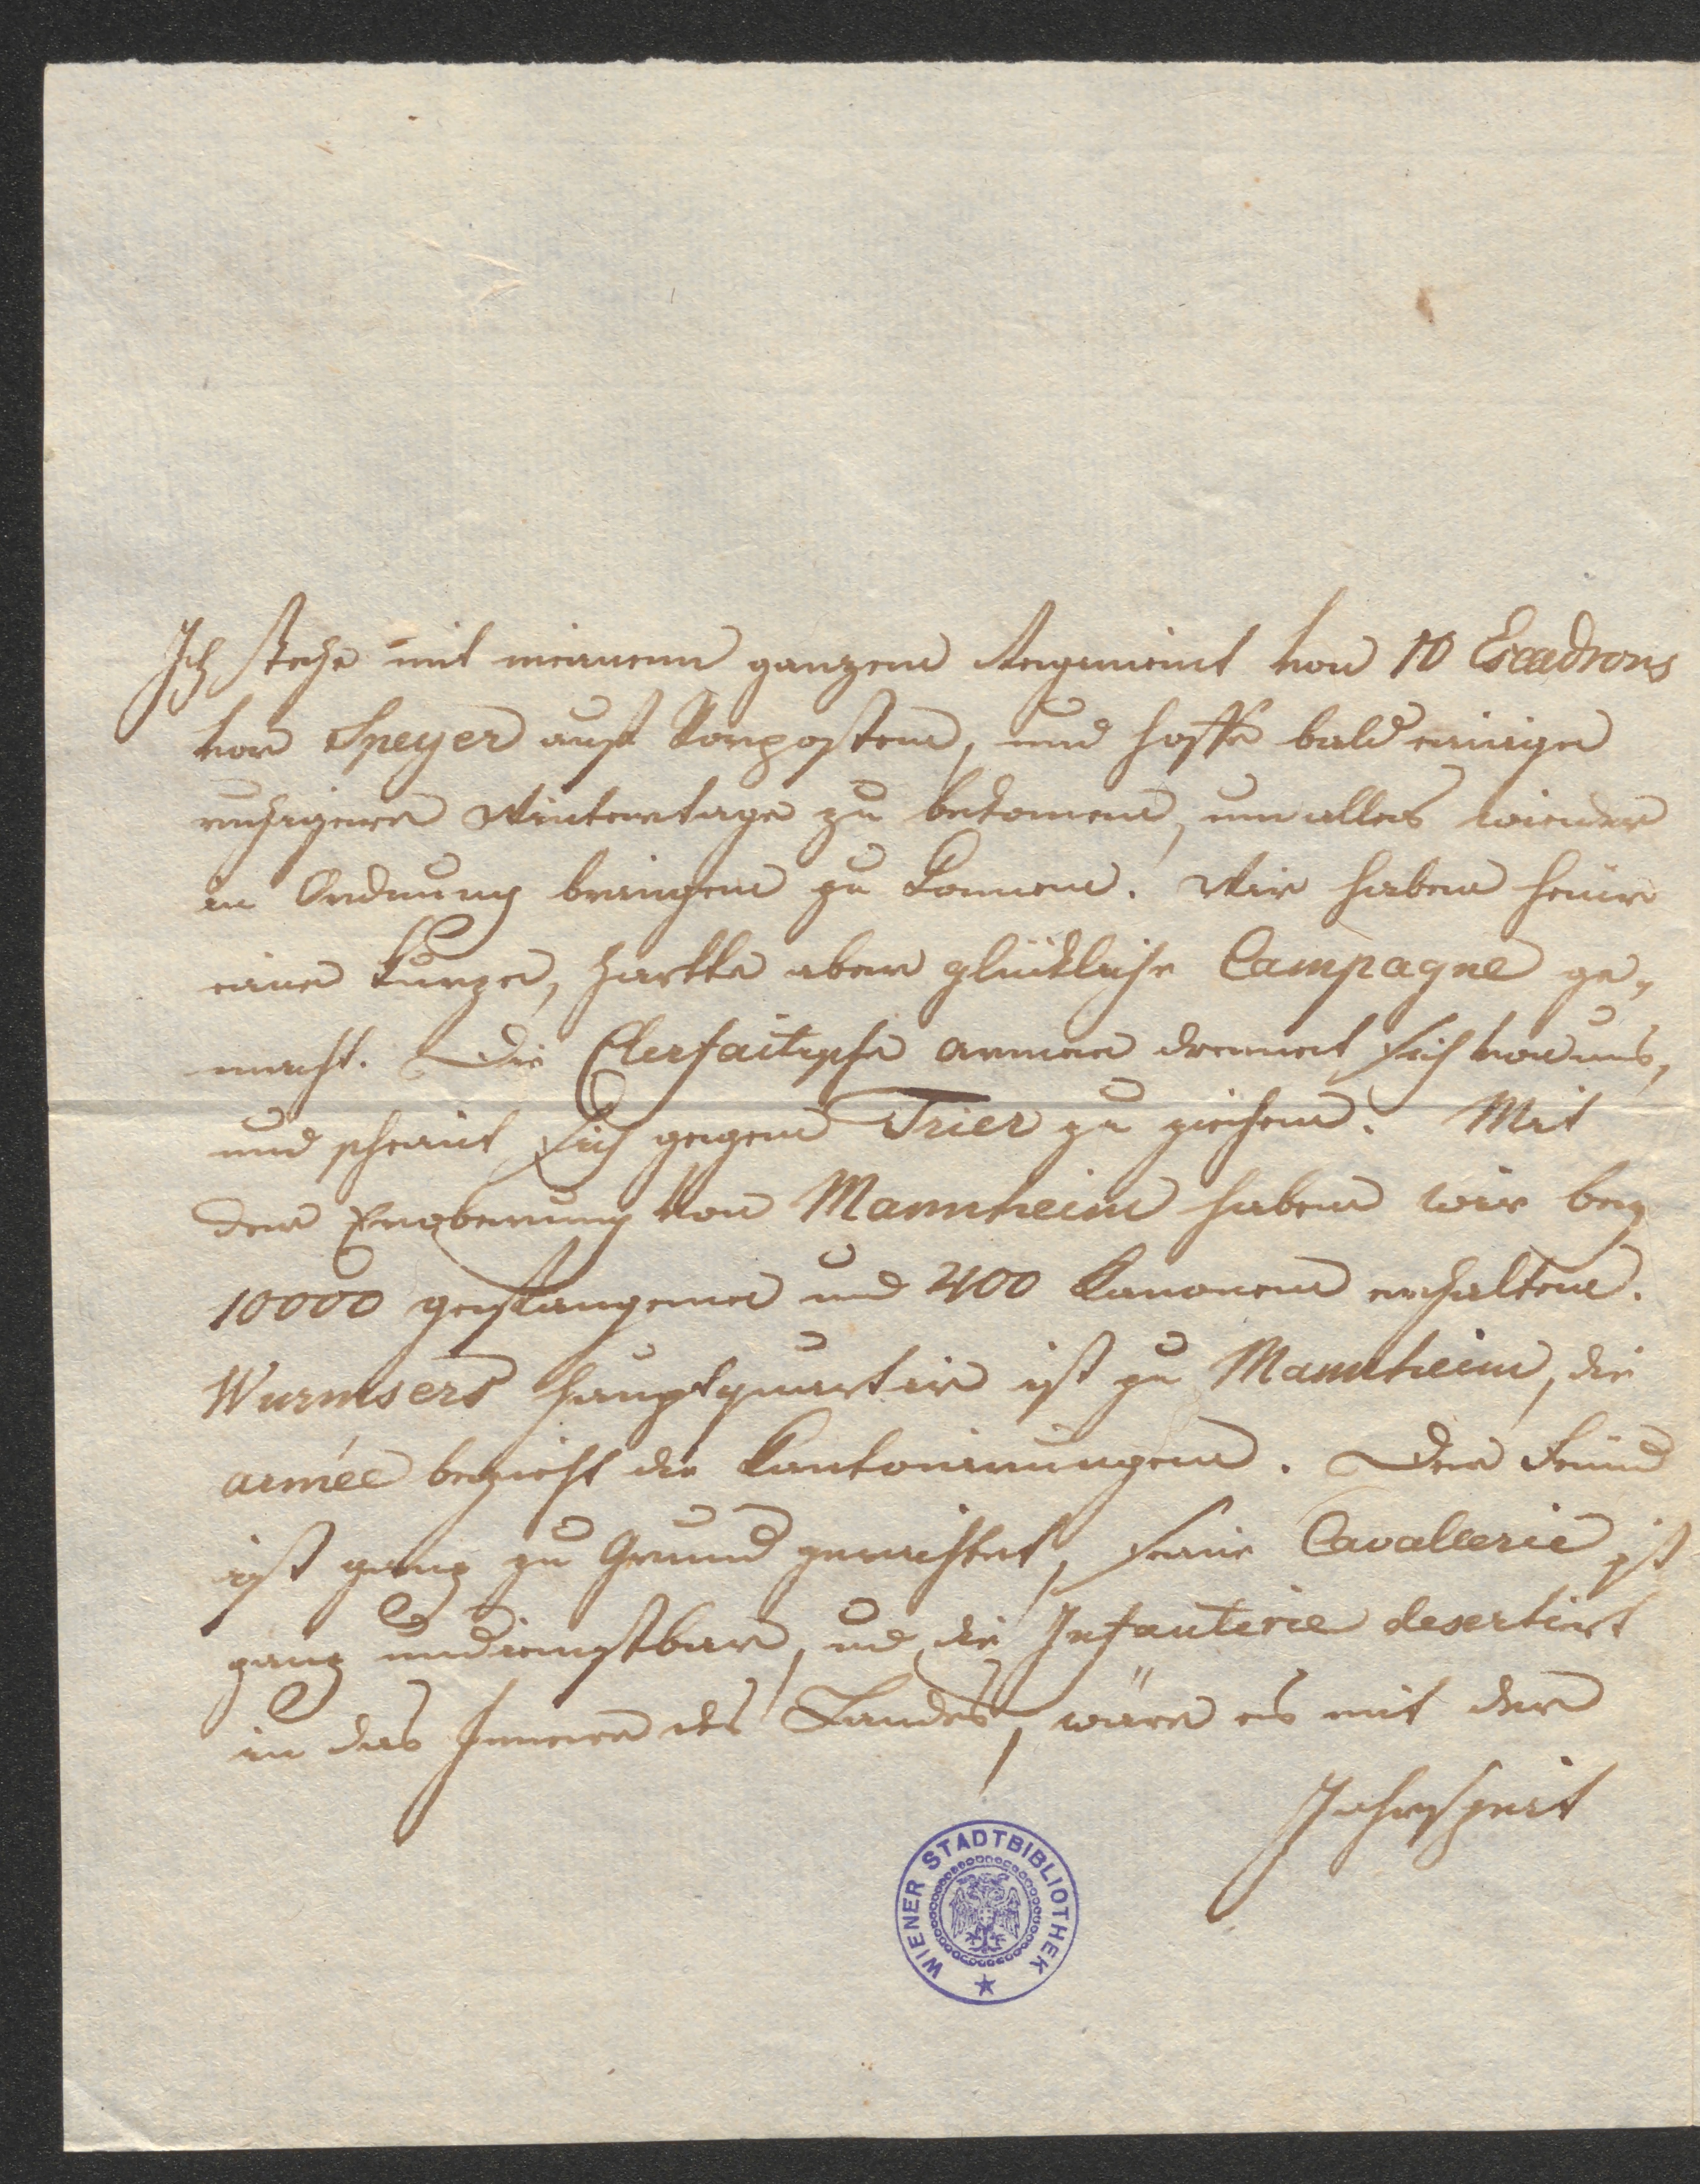 Ich stehe mit meinem ganzen Regiment von 10 Escadrons
vor Speyer auf Vorposten, und hoffe bald einige
ruhigere Wintertage zu bekomen, um alles wieder
in Ordnung bringen zu konnen. Wir haben heuer
eine kurze, hartte aber glückliche Campagne ge-
macht. Die Clerfaitische Armee trennet sich von uns,
und scheint sich gegen Trier zu ziehen. Mit
der Eroberung von Mannheim haben wir bey
10000 gefangene und 400 Kanonen erhalten.
Wurmsers Hauptquartier ist zu Mannheim, die
armée bezieht die Kantonirungen. Der Feind
ist ganz zu Grund gerichtet, seine Cavallerie ist
ganz undienstbar, und die Infanterie desertiert
in das Innere des Landes, wäre es mit der
Jahrszeit
WIENER STADTBIBLIOTHEK